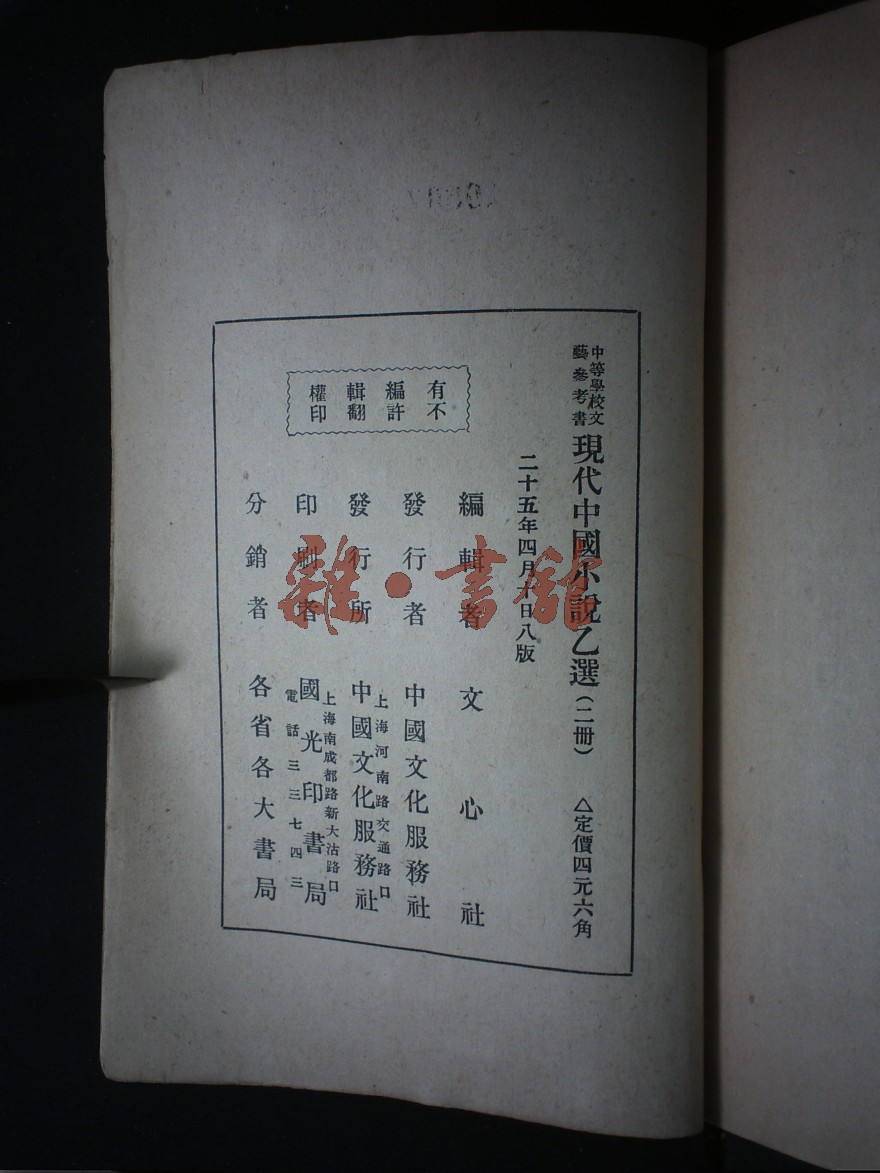 中等學校文
藝參考書
現代中國小說乙選（二冊）
△定價四元六角
二十五年四月十日八版
編輯者 文心社
發行者 中國文化服務社
上海河南路交通路口
發行所 中國文化服務社
上海南成都路新大沽路口
印刷者 國光印書局
電話三三七四三
分銷者 各省各大書局
有不
編許
輯翻
權印
雜·書館